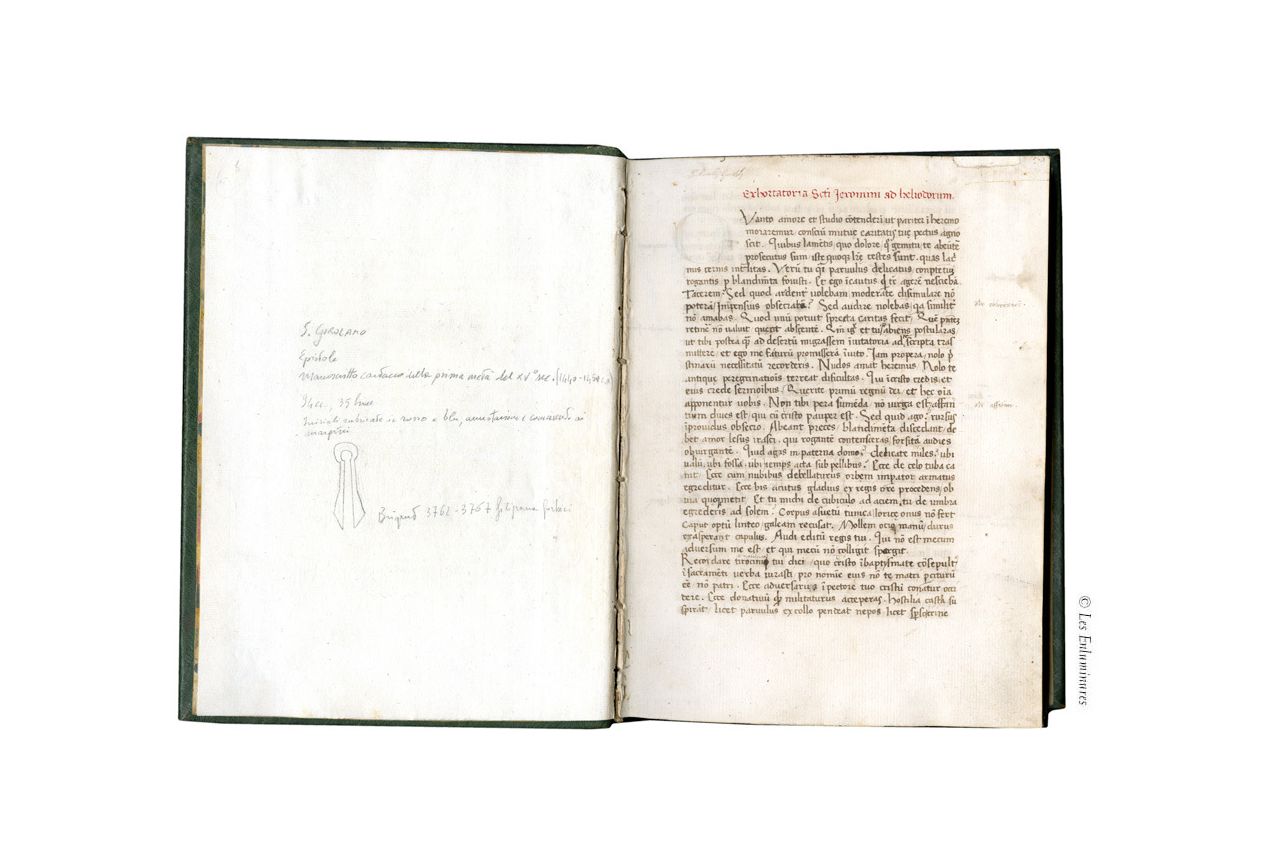 S. GIROLAMO
Epistole
Manoscritto cartaceo della prima metà del XV° sec. (1440-1450
35 linee
Iniziali rubricate in rosso e blu, annotazioni e commento ai
margini
3762-3767
Exhortatoria Scti Jeronimi ad heliodorum.
Vanto amore et studio cōtenderī ut pariter ī heremo
moraremur consciū mutuę caritatis tuę pectus agno
scit. Quibus lamētis, quo dolore q̄ gemitu te abeūtē
prosecutus sum iste quoqꝫ lr̄e testes sunt. quas lac
mis cernis int̄litas. Verū tu q̄ parvulus delicatus
rogantis p blandimta fovisti. Et ego īcautus qd tc̄ agerē nescieba
Tacerem? Sed quod ardent volebam moderate disimulare nō
poterā? Impensius obsecrarē? Sed audire nolebas, qa similit
nō amabas. Quod unū potuit spreta caritas fecit.
retinē nō valuit querit absentē. et tu abiens postularas
ut tibi postea ad desertū migrassem īvitatoria ad scripta tras
mittere, et ego me faturū promisserā īvito. Iam propera, nolo p̄
stinarū necessitatū recorderis. Nudos amat heremus. Nolo te
antique peregrinatiōis terreat dificultas. Qui ī cristo credis, et
eius crede sermoībus. Querite primū regnū dei, et hec oīa
apponentur vobis. Non tibi pera sumēda nō virga est, affatī
tium dives est, qui cū cristo pauper est. Sed quid ago? rursus
īprovidus obsecro. Abeant preces, blandimēta discedant, de
bet amor lesus irasci. qui rogantē contenseras, forsitā audies
obiurgantē. Quid agis in paterna domo? delicate miles? ubi
valū, ubi fossa, ubi iemps acta sub pellibus? Ecce de celo tuba ca
nit. Ecce cum nubibus debellaturus orbem impator armatus
egreditur. Ecce bis acutus gladius ex regis ore procedens, ob
via quoqꝫ metit. Et tu michi de cubiculo ad aciem, tu de umbra
egrederis ad solem? Corpus asuetū tunica, lorice onus nō fert
Caput optū linteo, galeam recusat. Mollem ocio manū, durus
exasperant capulus. Audi edittū regis tui. Qui nō est mecum
adversum me est, et qui mecū nō colligit spargit.
Recordare tirocinii tui diei, quo cristo ī baptysmate cōsepult
ī sacramēti verba iurasti pro nomīe eius nō te matri pciturū
eē nō patri. Ecce adversarius ī pectore tuo cristū conatur occi
dere. Ecce donativū qd militaturus acceperas, hostilia castra su
spirāt, licet parvulus ex collo pendeat nepos, licet
© Les Enluminures